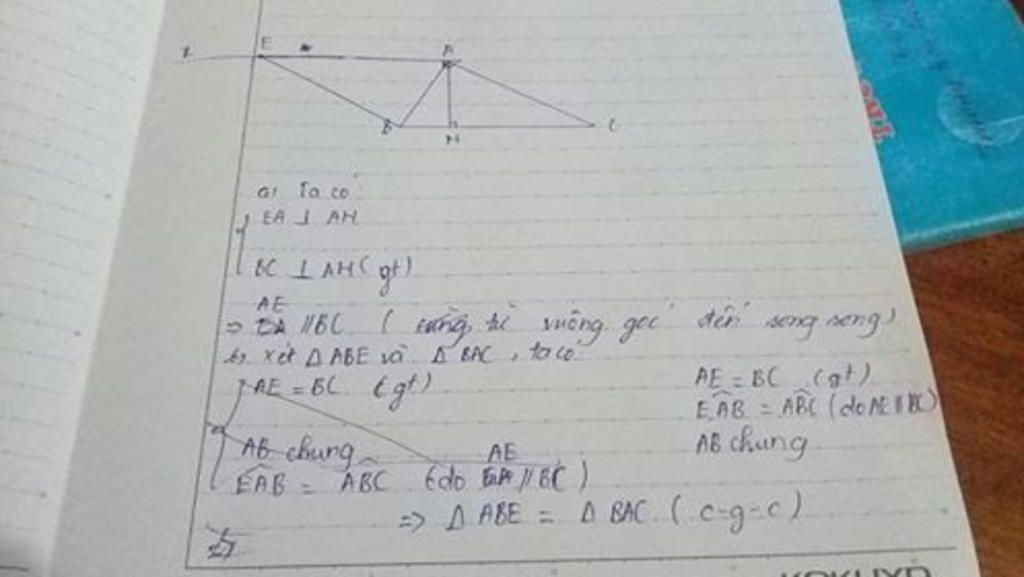 x E A
B H C
a, Ta có:
EA ⊥ AH
BC ⊥ AH (gt)
AE
=> EA // BC ( từ vuông góc đến song song)
b, xét Δ ABE và Δ BAC, ta có:
AE = BC (gt)
AB chung
AE
EAB = ABC (do EA // BC)
AE = BC (gt)
EAB = ABC (do AE // BC)
AB chung
=> Δ ABE = Δ BAC (c-g-c)
KOKUYO